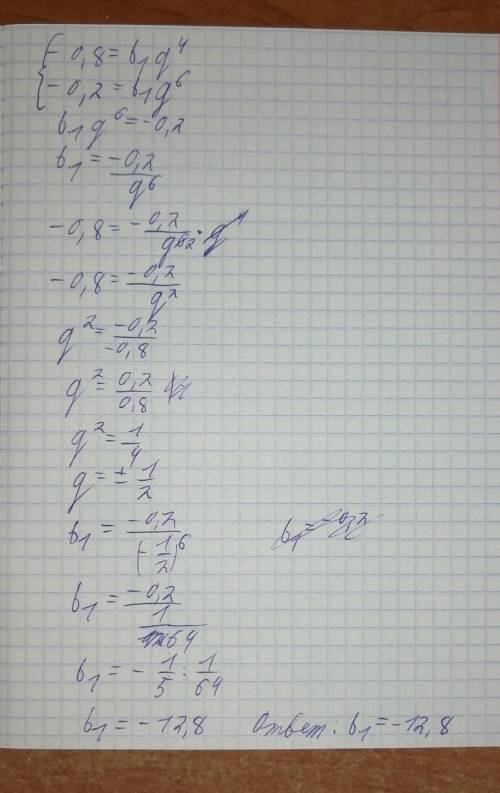 { -0,8 = b₁q⁴
-0,2 = b₁q⁶
b₁q⁶ = -0,2
b₁ = -0,2/q⁶
-0,8 = -0,2/q⁶² · q⁴
-0,8 = -0,2/q²
q² = -0,2/-0,8
q² = 0,2/0,8
q² = 1/4
q = ± 1/2
b₁ = -0,2/(-1/2)⁶
b₁ = -0,2/(1/64)
b₁ = - 1/5 : 1/64
b₁ = -12,8 Ответ: b₁ = -12,8